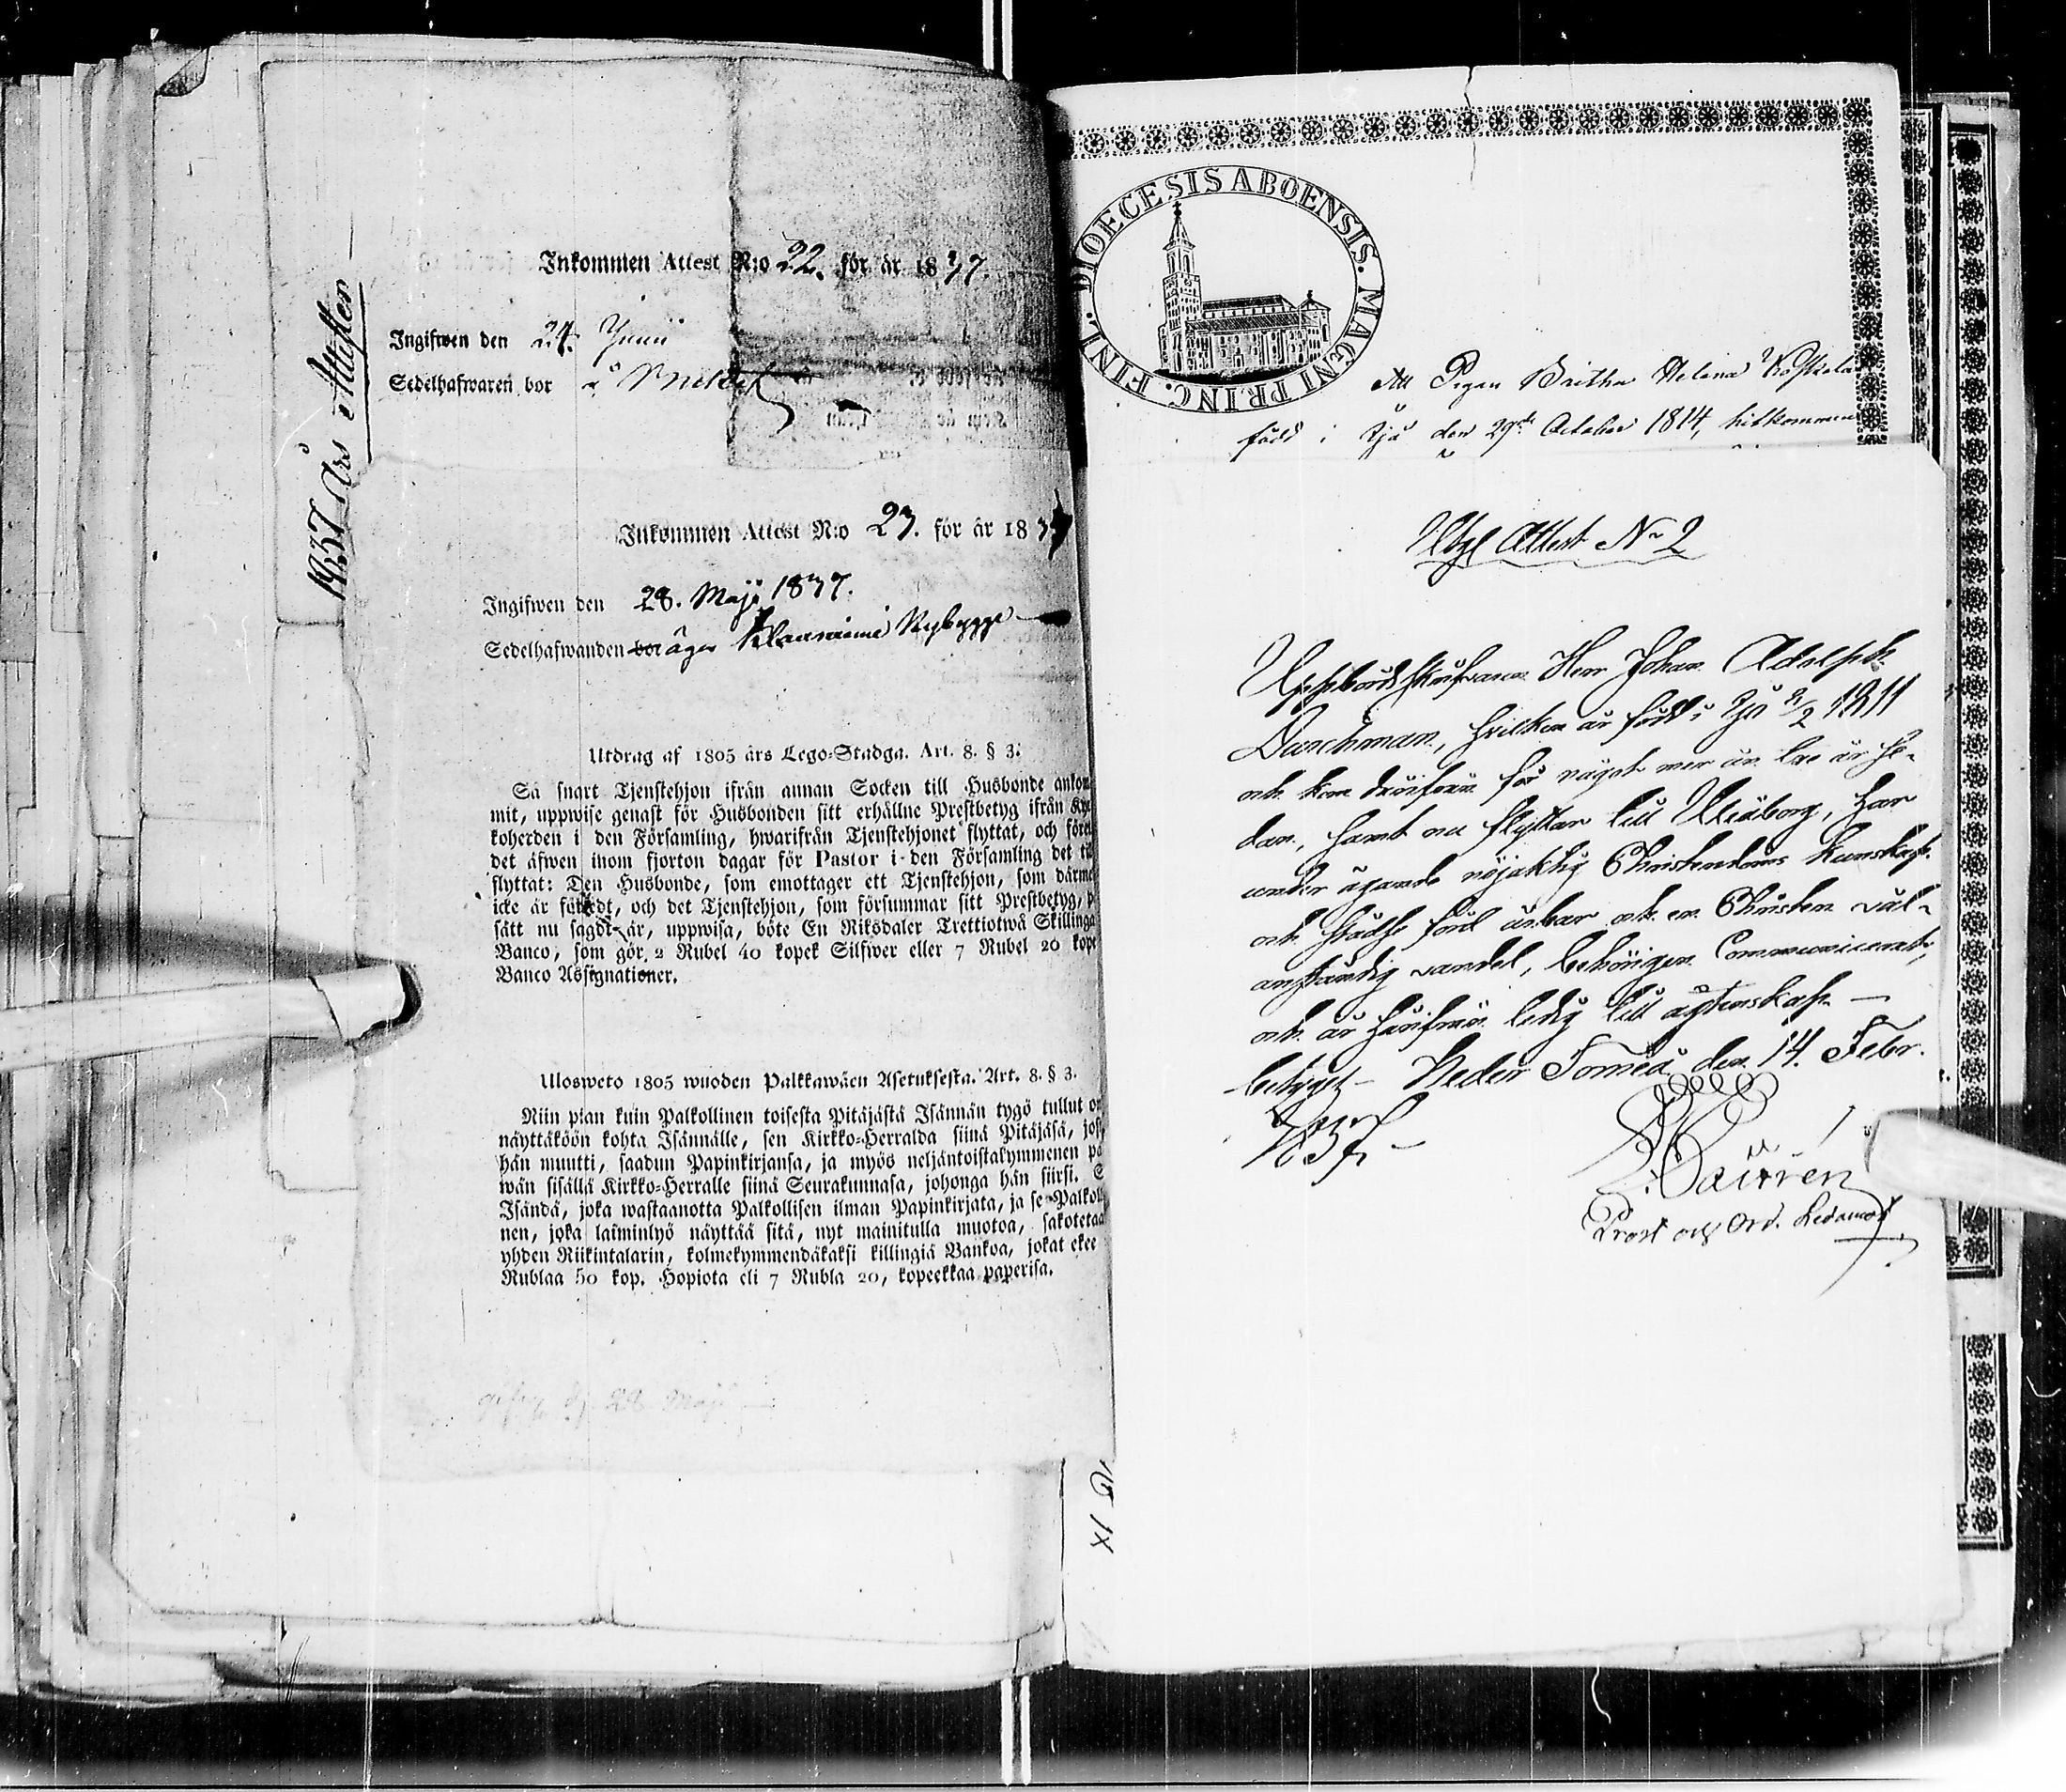 1837 Års Attester
Inkommen Attest N:o 22. för år 1837.
Ingifwen den 24. Junii
Sedelhafwaren bor å
Inkommen Attest N:o 23. för år 1837
Ingifwen den 28. Maji 1837.
Sedelhafwanden bor äger Klaaraniemi Nybygge
Utdrag af 1805 års Lego-Stadga. Art. 8. § 3.
Så snart Tjenstehjon ifrån annan Socken till Husbonde ankom
mit, uppwise genast för Husbonden sitt erhållne Prestbetyg ifrån Kyr
koherden i den Församling, hwarifrån Tjenstehjonet flyttat, och före
det äfwen inom fjorton dagar för Pastor i den Församling det til
flyttat: Den Husbonde, som emottager ett Tjenstehjon, som därme
icke är försedt, och det Tjenstehjon, som försummar sitt Prestbetyg, p
sätt nu sagdt är, uppwisa, böte En Riksdaler Trettiotwå Skillinga
Banco, som gör 2 Rubel 40 kopek Silfwer eller 7 Rubel 20 kope
Banco Assignationer.
Ulosweto 1805 wuoden Palkkawäen Asetuksesta. Art. 8. § 3.
Niin pian kuin Palkollinen toisesta Pitäjästä Isännän tygö tullut on
näyttäköön kohta Isännälle, sen Kirkko-Herralda siinä Pitäjäsä, jost
hän muutti, saadun Papinkirjansa, ja myös neljäntoistakymmenen pä
wän sisällä Kirkko-Herralle siinä Seurakunnasa, johonga hän siirsi. S
Isändä, joka wastaanotta Palkollisen ilman Papinkirjata, ja se Palkoll
nen, joka laiminlyö näyttää sitä, nyt mainitulla muotoa, sakotetaa
yhden Riikintalarin, kolmekymmendäkaksi killingiä Bankoa, jokat ekee
Rublaa 50 kop. Hopiota eli 7 Rubla 20, kopeekkaa paperisa.
28 Maji
DIOECESIS ABOENSIS. MAGNI PRINC. FINL.
Att Pigan Britha Helena Koskela
född i Ijå den 29de October 1814, hitkommen
Utgl Attest No 2
Uppbördsskrifvaren Herr Johan Adolph
Durchman, hvilken är född i Ijå 1811
och kom därifrån för något mer än tre år se-
dan, samt nu flyttar till Uleåborg, har
under ägande nöjaktig Christendoms kunskap
och städse fört ärbar och en Christen väl-
anständig vandel, behörigen Communicerat,
och är härifrån ledig till äktenskap —
betygt — Neder Torneå den 14. Febr.
1837 —
Prost och Ord. Ledamot